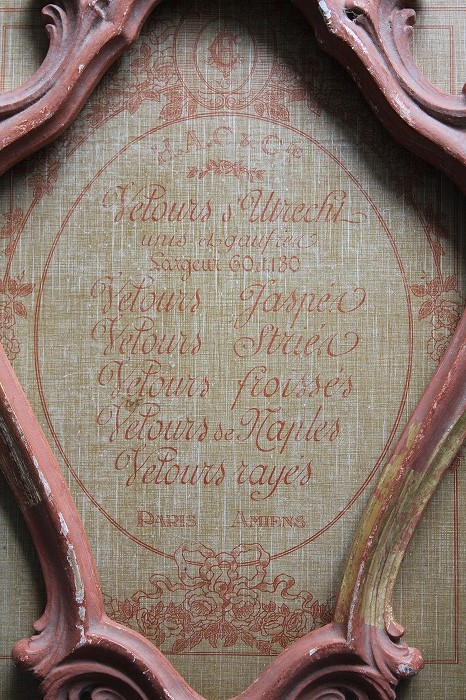 J.A.C & Cie
Velours d'Utrecht
unis et gaufrés
Largeur 60 à 130
Velours Jaspés
Velours Striés
Velours froissés
Velours de Naples
Velours rayés
PARIS AMIENS